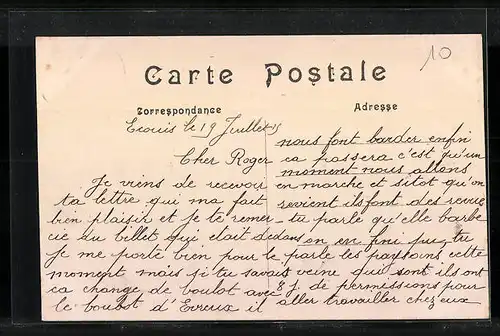 10
Carte Postale
Correspondance
Adresse
Ecouis le 19 Juillet 15
Cher Roger
Je viens de recevoir
ta lettre qui ma fait
bien plaisir et je te remer-
cie du billet qui était dedans
je me porte bien pour le
moment mais si tu savais
ca change de boulot avec
le boulot d'Evreux il
nous font barder enfin
ca passera c'est qu'un
moment nous allons
en marche et sitot qu'on
revient ils font des revue
tu parle qu'elle barbe
on en fini pu, tu
parle les paysans cette
veine qui sont ils ont
8 j. de permissions pour
aller travailler chez eux